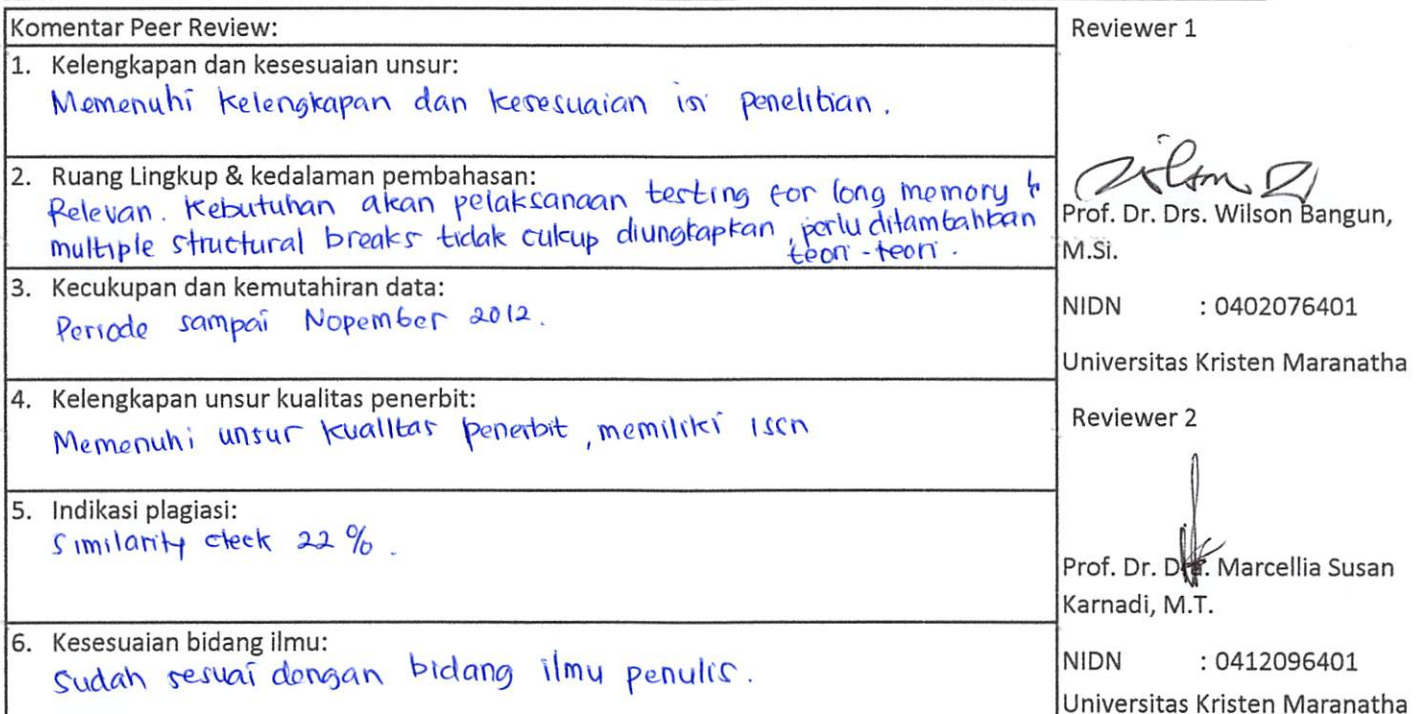 Komentar Peer Review:
1. Kelengkapan dan kesesuaian unsur:
Memenuhi kelengkapan dan kesesuaian isi penelitian.
2. Ruang Lingkup & kedalaman pembahasan:
Relevan. Kebutuhan akan pelaksanaan testing for long memory &
multiple structural breaks tidak cukup diungkapkan, perlu ditambahkan
teori-teori.
3. Kecukupan dan kemutahiran data:
Periode sampai Nopember 2012.
4. Kelengkapan unsur kualitas penerbit:
Memenuhi unsur kualitas penerbit, memiliki issn
5. Indikasi plagiasi:
Similarity cleck 22 %.
6. Kesesuaian bidang ilmu:
Sudah sesuai dengan bidang ilmu penulis.
Reviewer 1
Prof. Dr. Drs. Wilson Bangun,
M.Si.
NIDN : 0402076401
Universitas Kristen Maranatha
Reviewer 2
Prof. Dr. Dra. Marcellia Susan
Karnadi, M.T.
NIDN : 0412096401
Universitas Kristen Maranatha